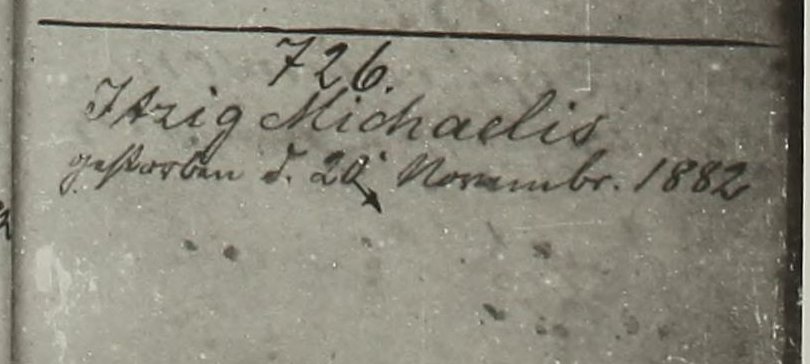 726.
Itzig Michaelis
gestorben d. 20' Novembr. 1882